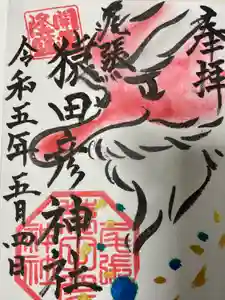 奉拝
尾張
猿田彦神社
令和五年五月四日